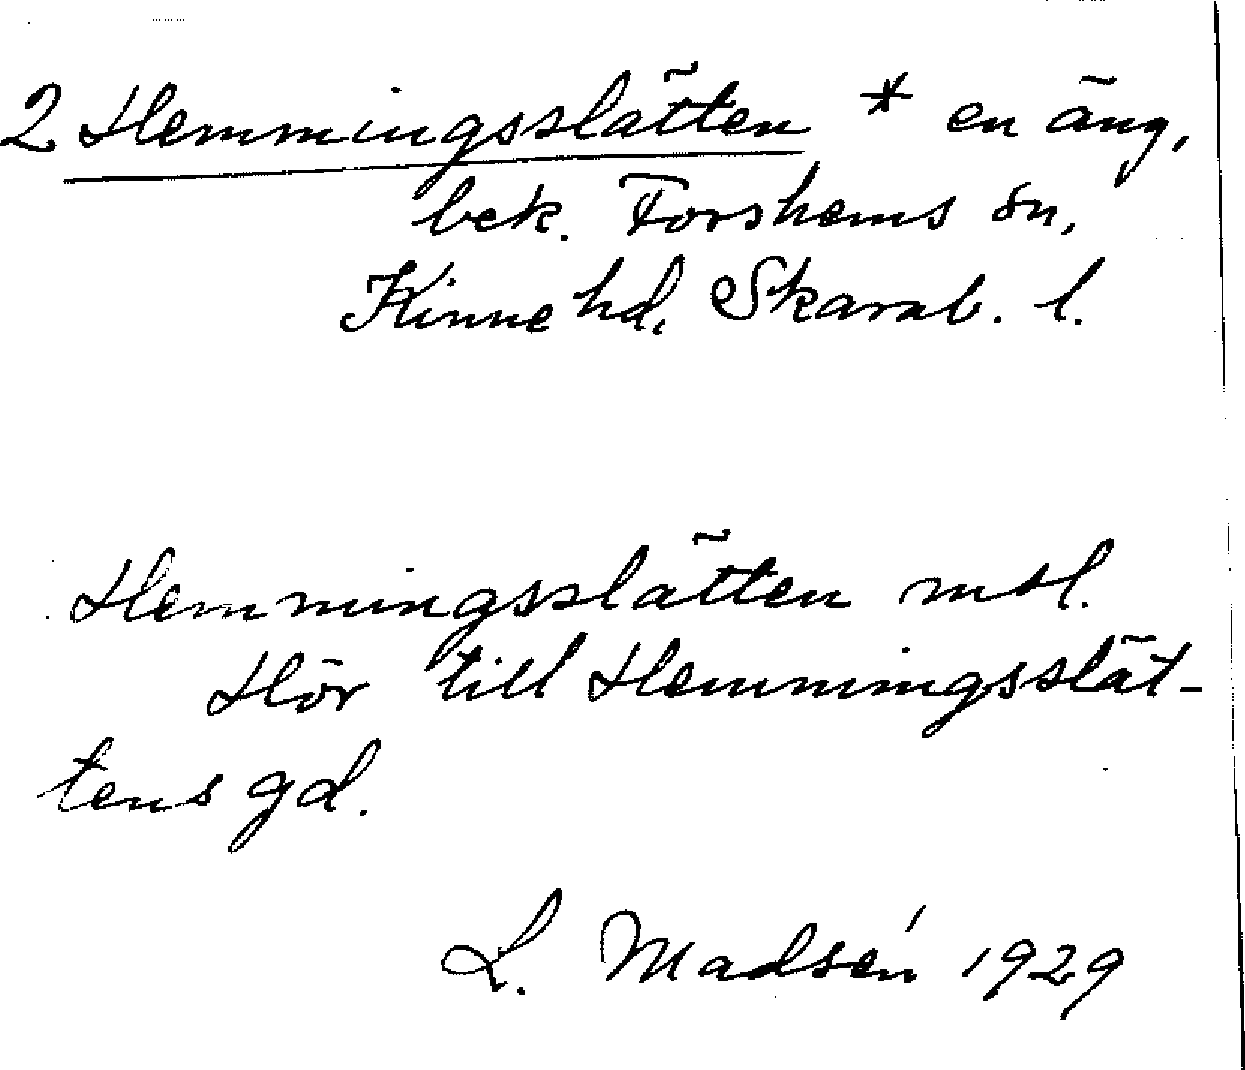 2 Hemmingsslätten * en äng,
bek. Forshems sn,
Kinne hd, Skarab. l.
Hemmingsslätten mtl.
Hör till Hemmingsslät-
tens gd.
L. Madsén 1929